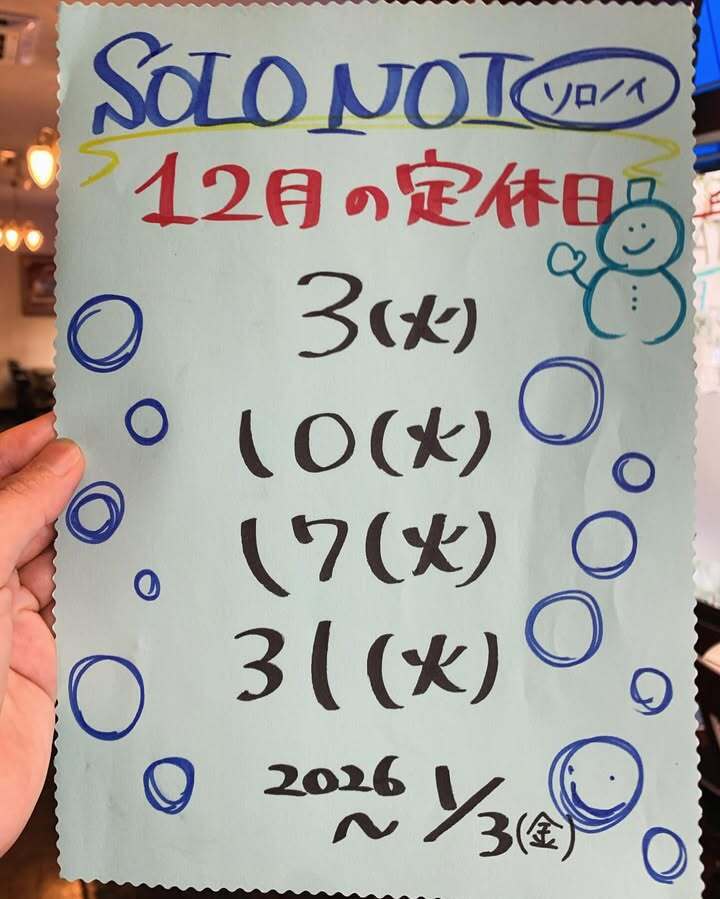 SOLO NOI ソロノイ
12月の定休日
3(火)
10(火)
17(火)
31(火)
2026
~1/3(金)